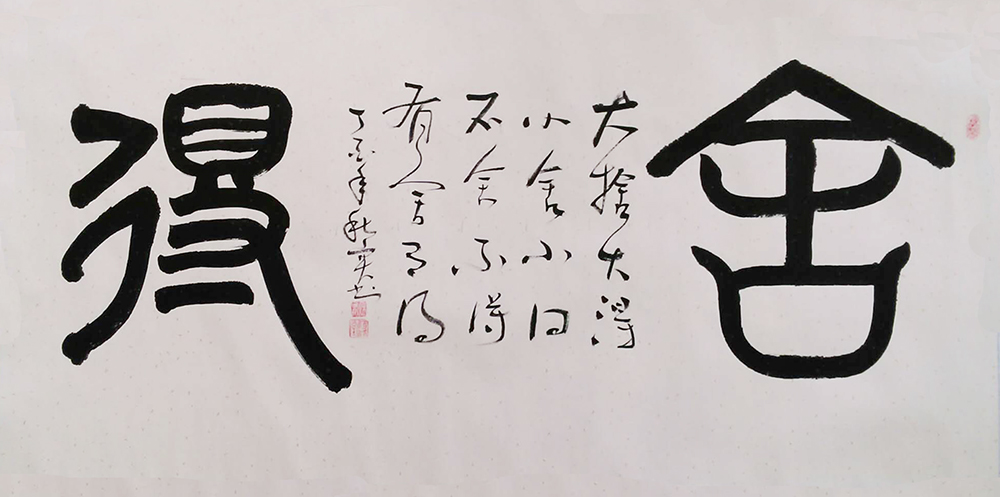 舍
大捨大得
小舍小得
不舍不得
有舍有得
年秋实书
得